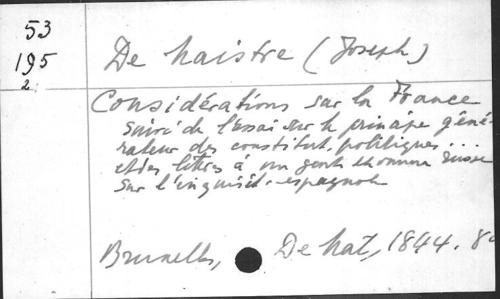 53
195
2
De Maistre (Joseph)
Considérations sur la France
suivi de l'essai sur le principe géné-
rateur des constitut. politiques...
et des lettres à un gentilhomme russe
sur l'inquisit. espagnole
Bruxelles, De Mat, 1844. 8°